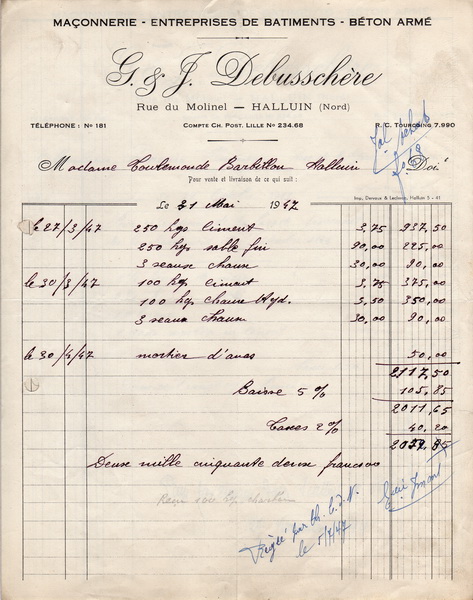 MAÇONNERIE - ENTREPRISES DE BATIMENTS - BÉTON ARMÉ
G. & J. Debusschère
Rue du Molinel — HALLUIN (Nord)
TÉLÉPHONE : Nº 181 COMPTE CH. POST. LILLE Nº 234.68 R. C. TOURCOING 7.990
Madame Halluin Doit
Pour vente et livraison de ce qui suit :
Imp. Halluin 5 - 41
Le 31 Mai 1947
le 27/3/47 250 kgs ciment 3,75 937,50
250 kgs sable fin 90,00 225,00
3 seaux chaux 30,00 90,00
le 30/3/47 100 kgs ciment 3,75 375,00
100 kgs chaux Hyd. 3,50 350,00
3 seaux chaux 30,00 90,00
le 30/4/47 mortier 50,00
2117,50
Baisse 5 % 105,85
2011,65
Taxes 2% 40,20
85
Deux mille cinquante deux francs
Reçu
par ch.
le 5/7/47